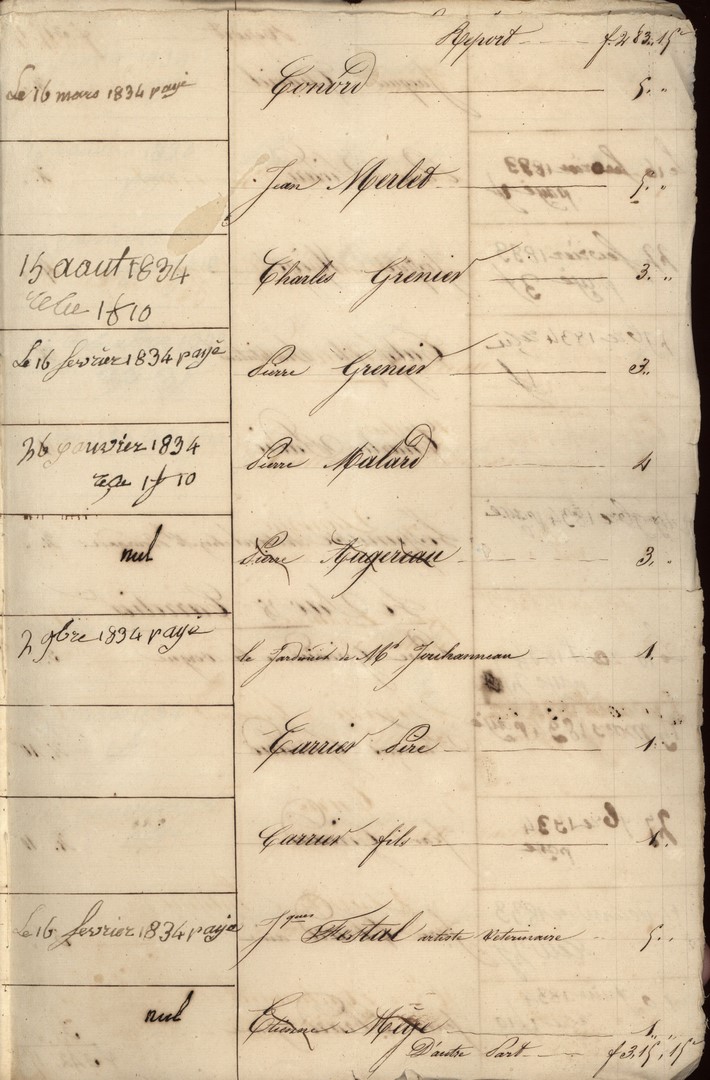 Report f. 283.. 15ᶜ
Le 16 mars 1834 payé Conord 5. "
Jean Merlet 5. "
15 aout 1834 Charles Grenier 3. "
1 f 10
Le 16 fevrier 1834 payé Pierre Grenier 3 "
26 janvier 1834 Pierre Malard 4
1 f 10
nul Pierre Augereau 3. "
2 9bre 1834 payé le Jardinier de Mᵈ Jouhanneau 1. "
Carrier Père 1 "
Carrier fils 1. "
Le 16 fevrier 1834 payé Jques Festal artiste Veterinaire 5. "
nul Etienne Mège 1 "
D'autre Part f 315,, 15ᶜ